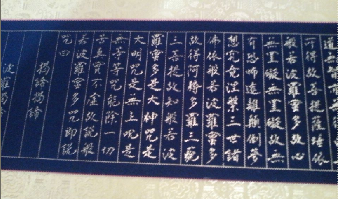 道無智亦無
可得故菩提薩埵依
般若波羅蜜多故心
無罣礙無罣礙故無
有恐怖遠離顛倒夢
想究竟涅槃三世諸
佛依般若波羅蜜多
故得阿耨多羅三藐
三菩提故知般若波
羅蜜多是大神咒是
大明咒是無上咒是
無等等咒能除一切
苦真實不虛故說般
若波羅蜜多咒即說
咒曰
揭諦揭諦
波羅揭